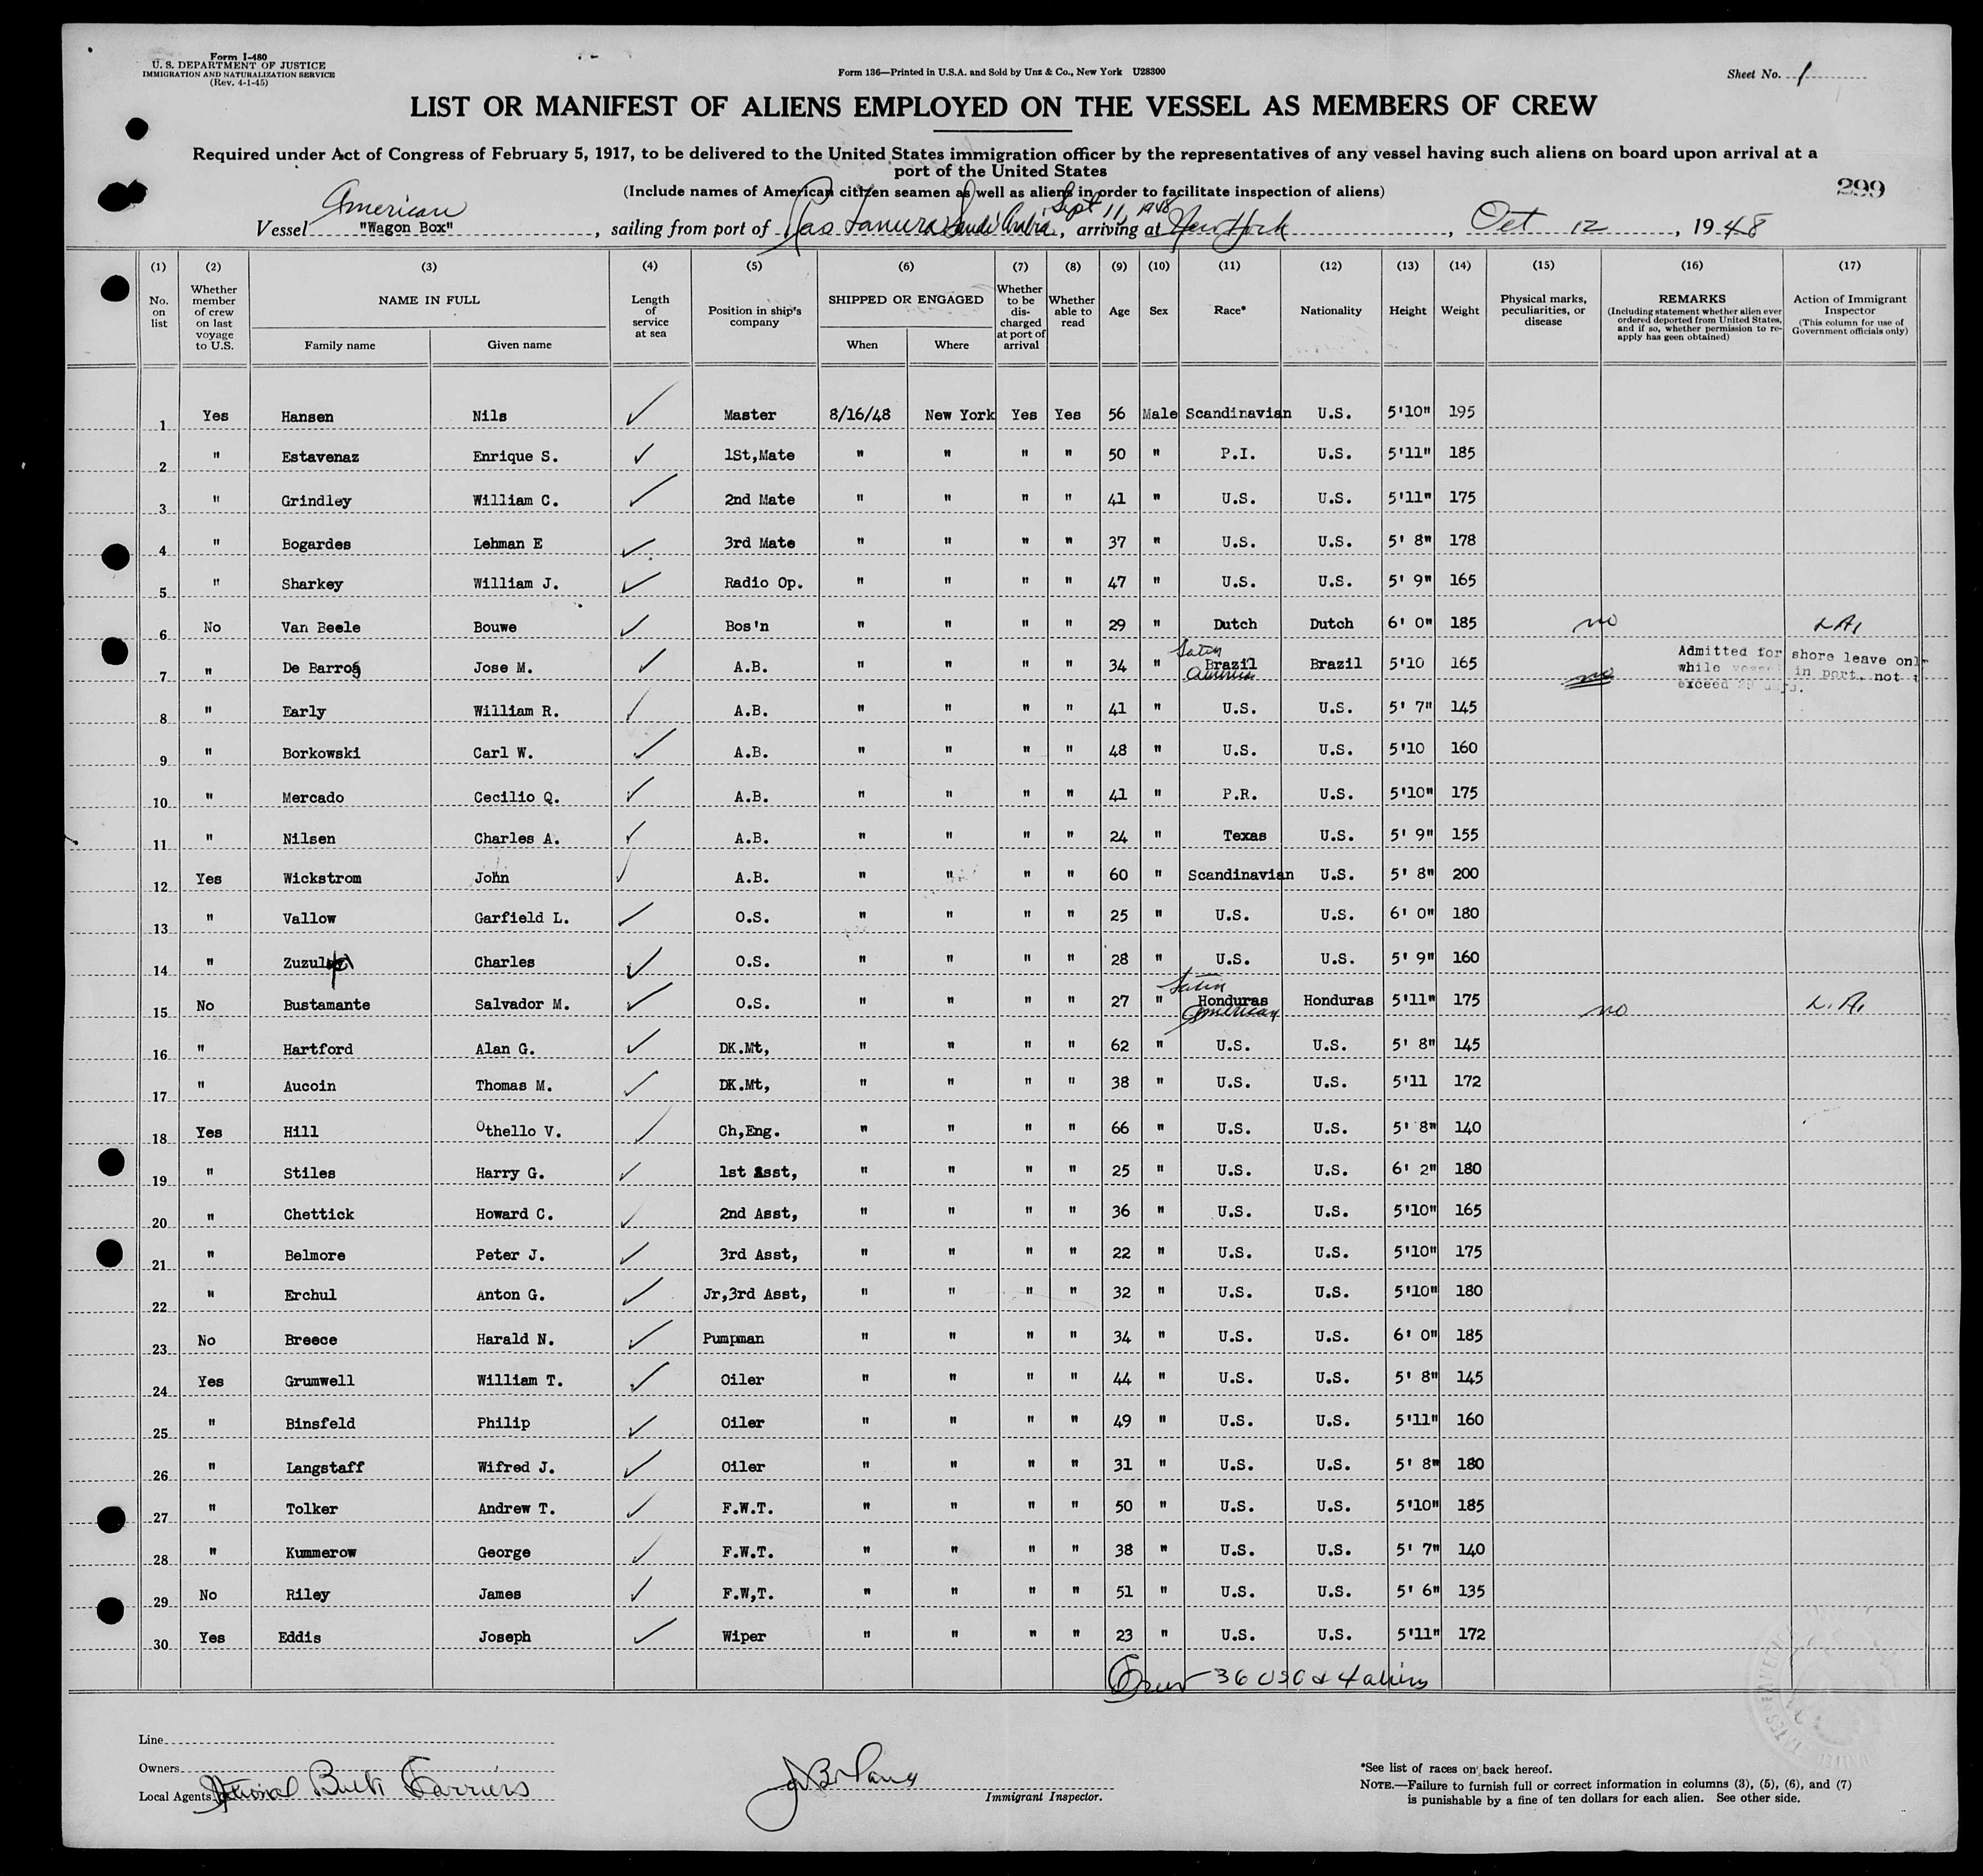 Form I-480
U. S. DEPARTMENT OF JUSTICE
IMMIGRATION AND NATURALIZATION SERVICE
(Rev. 4-1-45)
Form 136—Printed in U.S.A. and Sold by Unz & Co., New York U28300
Sheet No. 1
LIST OR MANIFEST OF ALIENS EMPLOYED ON THE VESSEL AS MEMBERS OF CREW
Required under Act of Congress of February 5, 1917, to be delivered to the United States immigration officer by the representatives of any vessel having such aliens on board upon arrival at a
port of the United States
(Include names of American citizen seamen as well as aliens in order to facilitate inspection of aliens)
299
American Sept 11, 1948
Vessel "Wagon Box", sailing from port of Ras Tanura Saudi Arabia, arriving at New York, Oct 12, 1948
(1) (2) (3) (4) (5) (6) (7) (8) (9) (10) (11) (12) (13) (14) (15) (16) (17)
No. on list
Whether member of crew on last voyage to U.S.
NAME IN FULL
Family name Given name
Length of service at sea
Position in ship's company
SHIPPED OR ENGAGED
When Where
Whether to be discharged at port of arrival
Whether able to read
Age Sex Race* Nationality Height Weight
Physical marks, peculiarities, or disease
REMARKS
(Including statement whether alien ever ordered deported from United States, and if so, whether permission to re-apply has geen obtained)
Action of Immigrant Inspector
(This column for use of Government officials only)
1 Yes Hansen Nils ✓ Master 8/16/48 New York Yes Yes 56 Male Scandinavian U.S. 5'10" 195
2 " Estavenaz Enrique S. ✓ 1St,Mate " " " " 50 " P.I. U.S. 5'11" 185
3 " Grindley William C. ✓ 2nd Mate " " " " 41 " U.S. U.S. 5'11" 175
4 " Bogardes Lehman E ✓ 3rd Mate " " " " 37 " U.S. U.S. 5' 8" 178
5 " Sharkey William J. ✓ Radio Op. " " " " 47 " U.S. U.S. 5' 9" 165
6 No Van Beele Bouwe ✓ Bos'n " " " " 29 " Dutch Dutch 6' 0" 185 no L.A.
7 " De Barros Jose M. ✓ A.B. " " " " 34 " Latin Brazil America Brazil 5'10 165 no Admitted for shore leave only while vessel in port, not exceed 29 days.
8 " Early William R. ✓ A.B. " " " " 41 " U.S. U.S. 5' 7" 145
9 " Borkowski Carl W. ✓ A.B. " " " " 48 " U.S. U.S. 5'10 160
10 " Mercado Cecilio Q. ✓ A.B. " " " " 41 " P.R. U.S. 5'10" 175
11 " Nilsen Charles A. ✓ A.B. " " " " 24 " Texas U.S. 5' 9" 155
12 Yes Wickstrom John ✓ A.B. " " " " 60 " Scandinavian U.S. 5' 8" 200
13 " Vallow Garfield L. ✓ O.S. " " " " 25 " U.S. U.S. 6' 0" 180
14 " Charles ✓ O.S. " " " " 28 " U.S. U.S. 5' 9" 160
15 No Bustamante Salvador M. ✓ O.S. " " " " 27 " Latin Honduras American Honduras 5'11" 175 no L.A.
16 " Hartford Alan G. ✓ DK.Mt, " " " " 62 " U.S. U.S. 5' 8" 145
17 " Aucoin Thomas M. ✓ DK.Mt, " " " " 38 " U.S. U.S. 5'11 172
18 Yes Hill Othello V. ✓ Ch,Eng. " " " " 66 " U.S. U.S. 5' 8" 140
19 " Stiles Harry G. ✓ 1st Asst, " " " " 25 " U.S. U.S. 6' 2" 180
20 " Chettick Howard C. ✓ 2nd Asst, " " " " 36 " U.S. U.S. 5'10" 165
21 " Belmore Peter J. ✓ 3rd Asst, " " " " 22 " U.S. U.S. 5'10" 175
22 " Erchul Anton G. ✓ Jr,3rd Asst, " " " " 32 " U.S. U.S. 5'10" 180
23 No Breece Harald N. ✓ Pumpman " " " " 34 " U.S. U.S. 6' 0" 185
24 Yes Grumwell William T. ✓ Oiler " " " " 44 " U.S. U.S. 5' 8" 145
25 " Binsfeld Philip ✓ Oiler " " " " 49 " U.S. U.S. 5'11" 160
26 " Langstaff Wifred J. ✓ Oiler " " " " 31 " U.S. U.S. 5' 8" 180
27 " Tolker Andrew T. ✓ F.W.T. " " " " 50 " U.S. U.S. 5'10" 185
28 " Kummerow George ✓ F.W.T. " " " " 38 " U.S. U.S. 5' 7" 140
29 No Riley James ✓ F.W,T. " " " " 51 " U.S. U.S. 5' 6" 135
30 Yes Eddis Joseph ✓ Wiper " " " " 23 " U.S. U.S. 5'11" 172
Crew 36 USC & 4 aliens
Line
Owners
Local Agents National Bulk Carriers
Immigrant Inspector.
*See list of races on back hereof.
NOTE.—Failure to furnish full or correct information in columns (3), (5), (6), and (7)
is punishable by a fine of ten dollars for each alien. See other side.